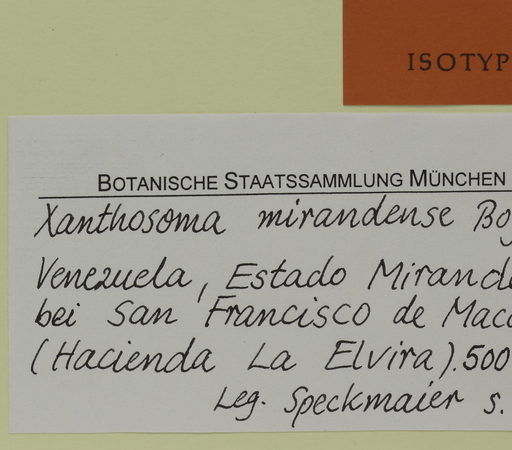 ISOTYP
BOTANISCHE STAATSSAMMLUNG MÜNCHEN
Xanthosoma mirandense Bo
Venezuela, Estado Mirand
bei San Francisco de Mac
(Hacienda La Elvira). 500
Leg. Speckmaier s.